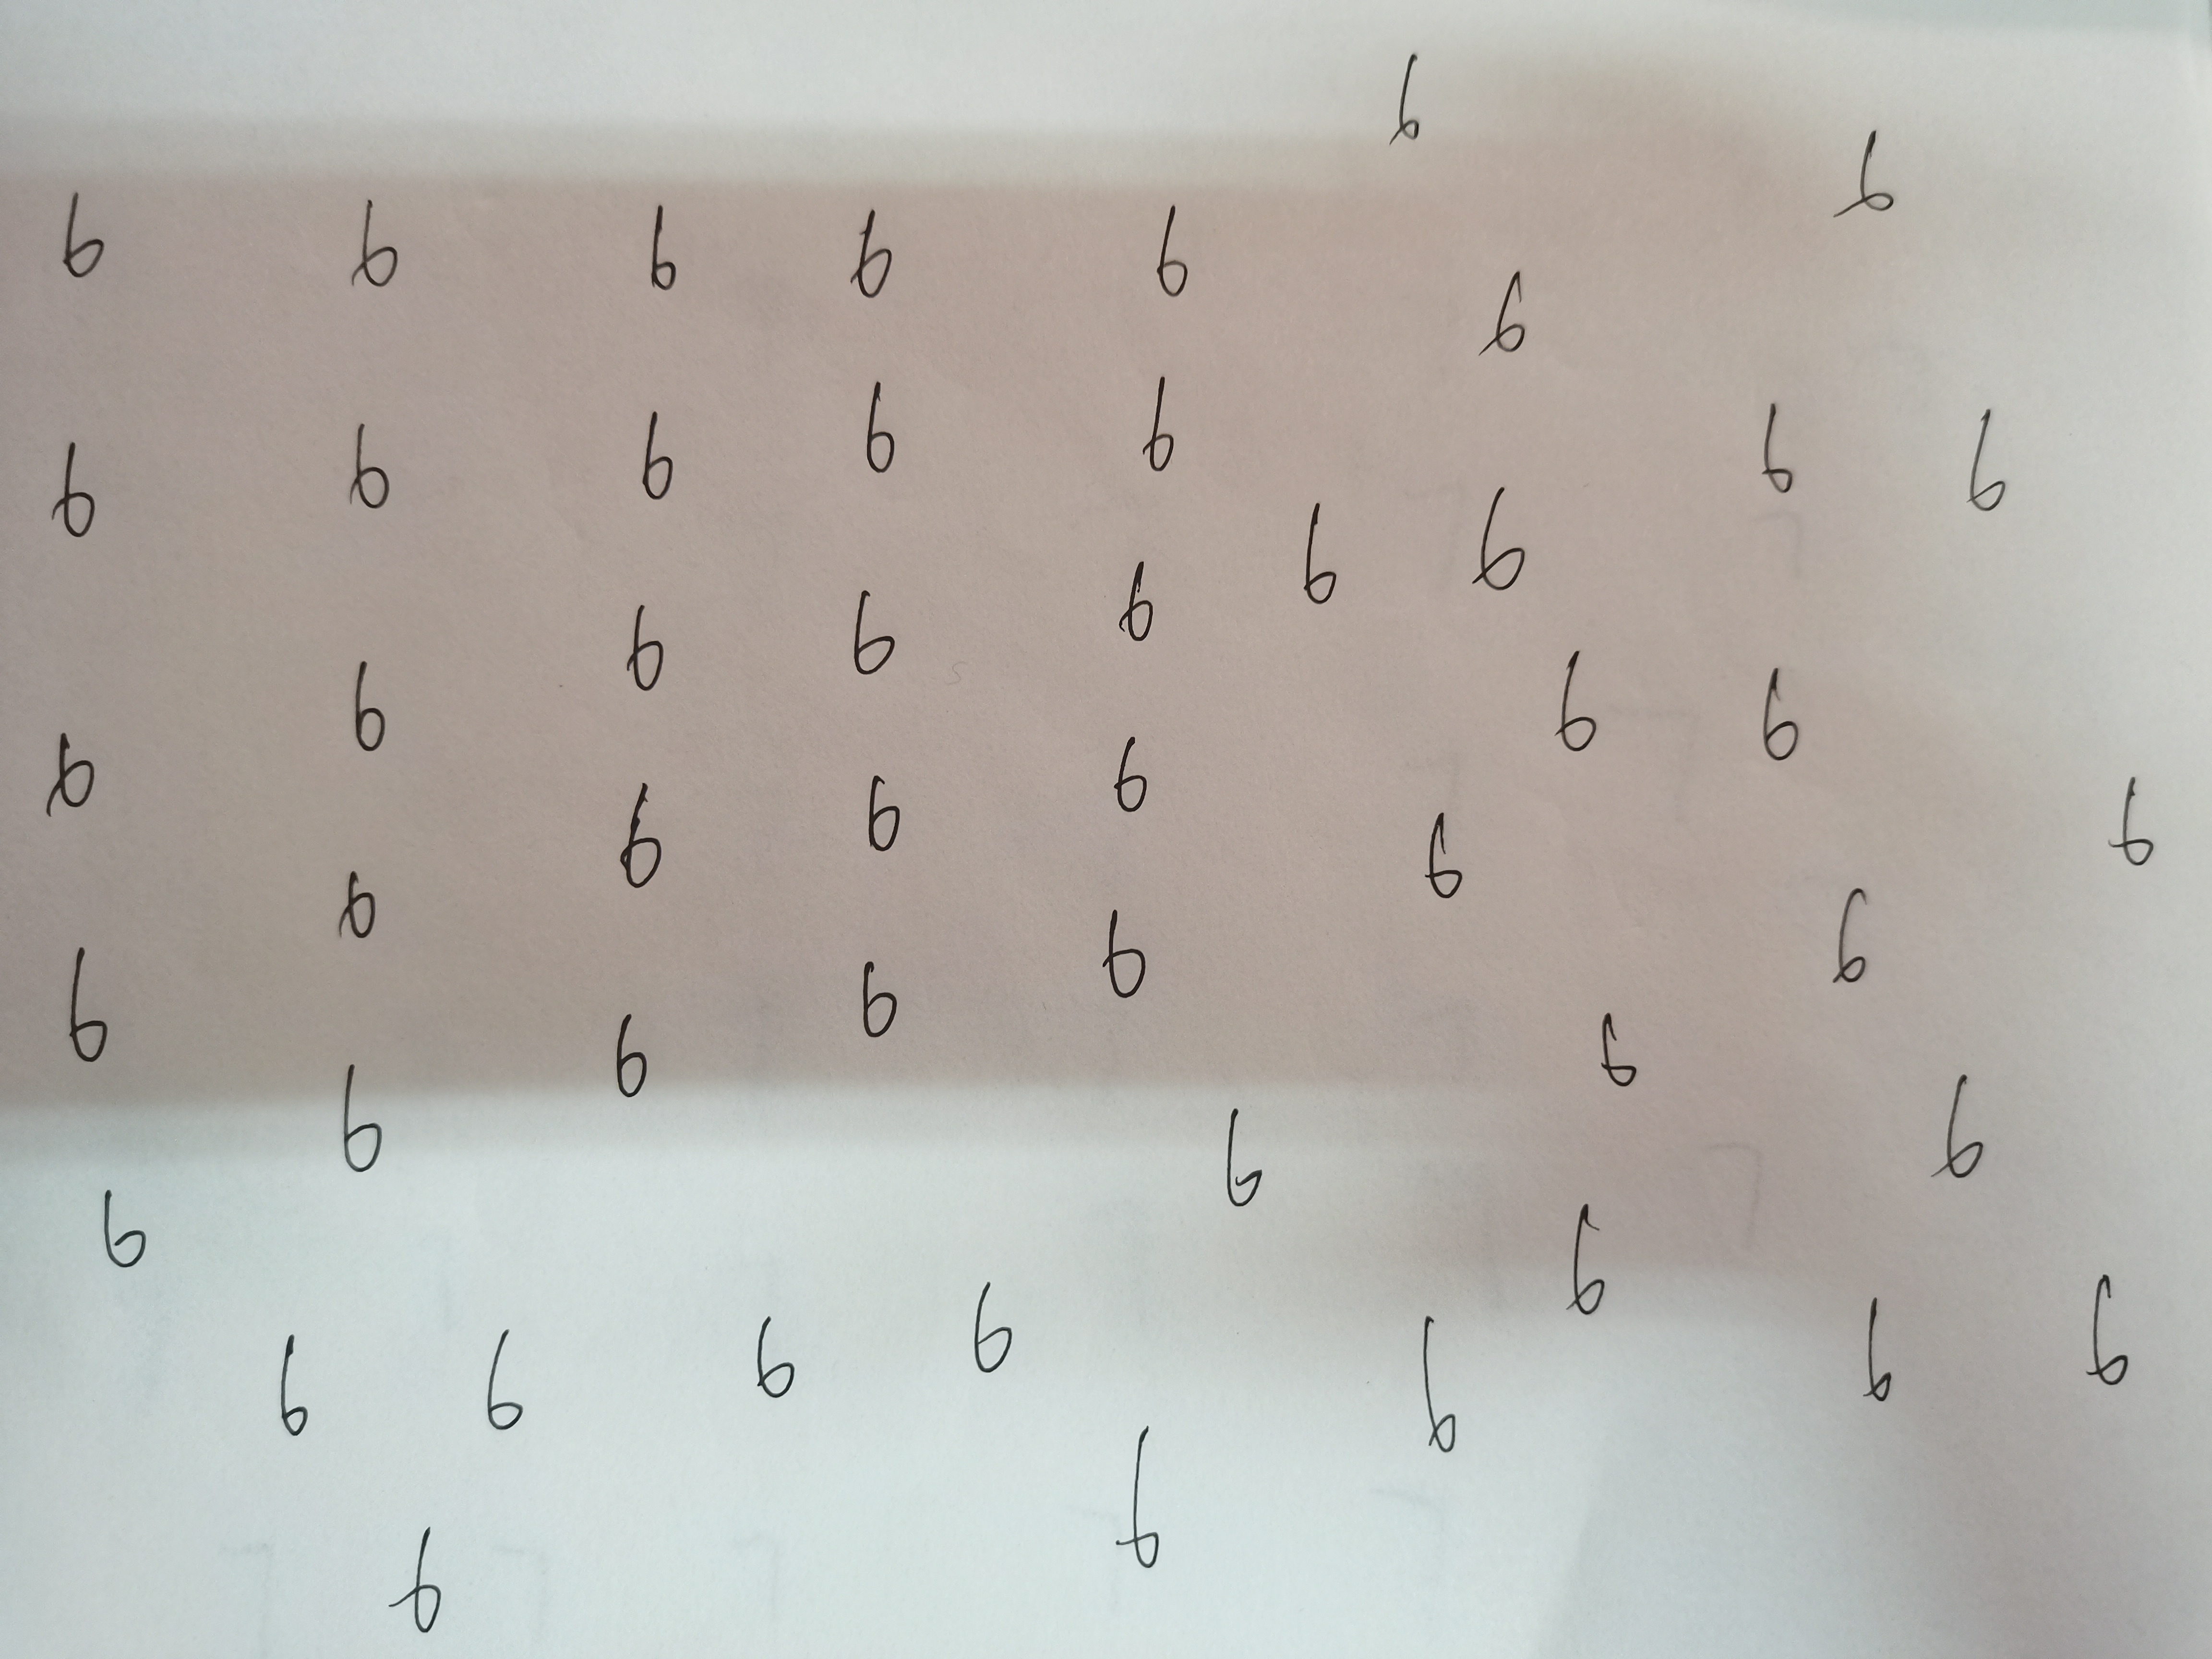 6 6
6 6 6 6 6 6
6 6 6 6 6 6 6
6 6
6 6 6 6 6 6
6 6 6 6 6 6
6 6 6 6 6 6
6 6 6 6
6 6
6 6 6 6 6 6 6
6 6